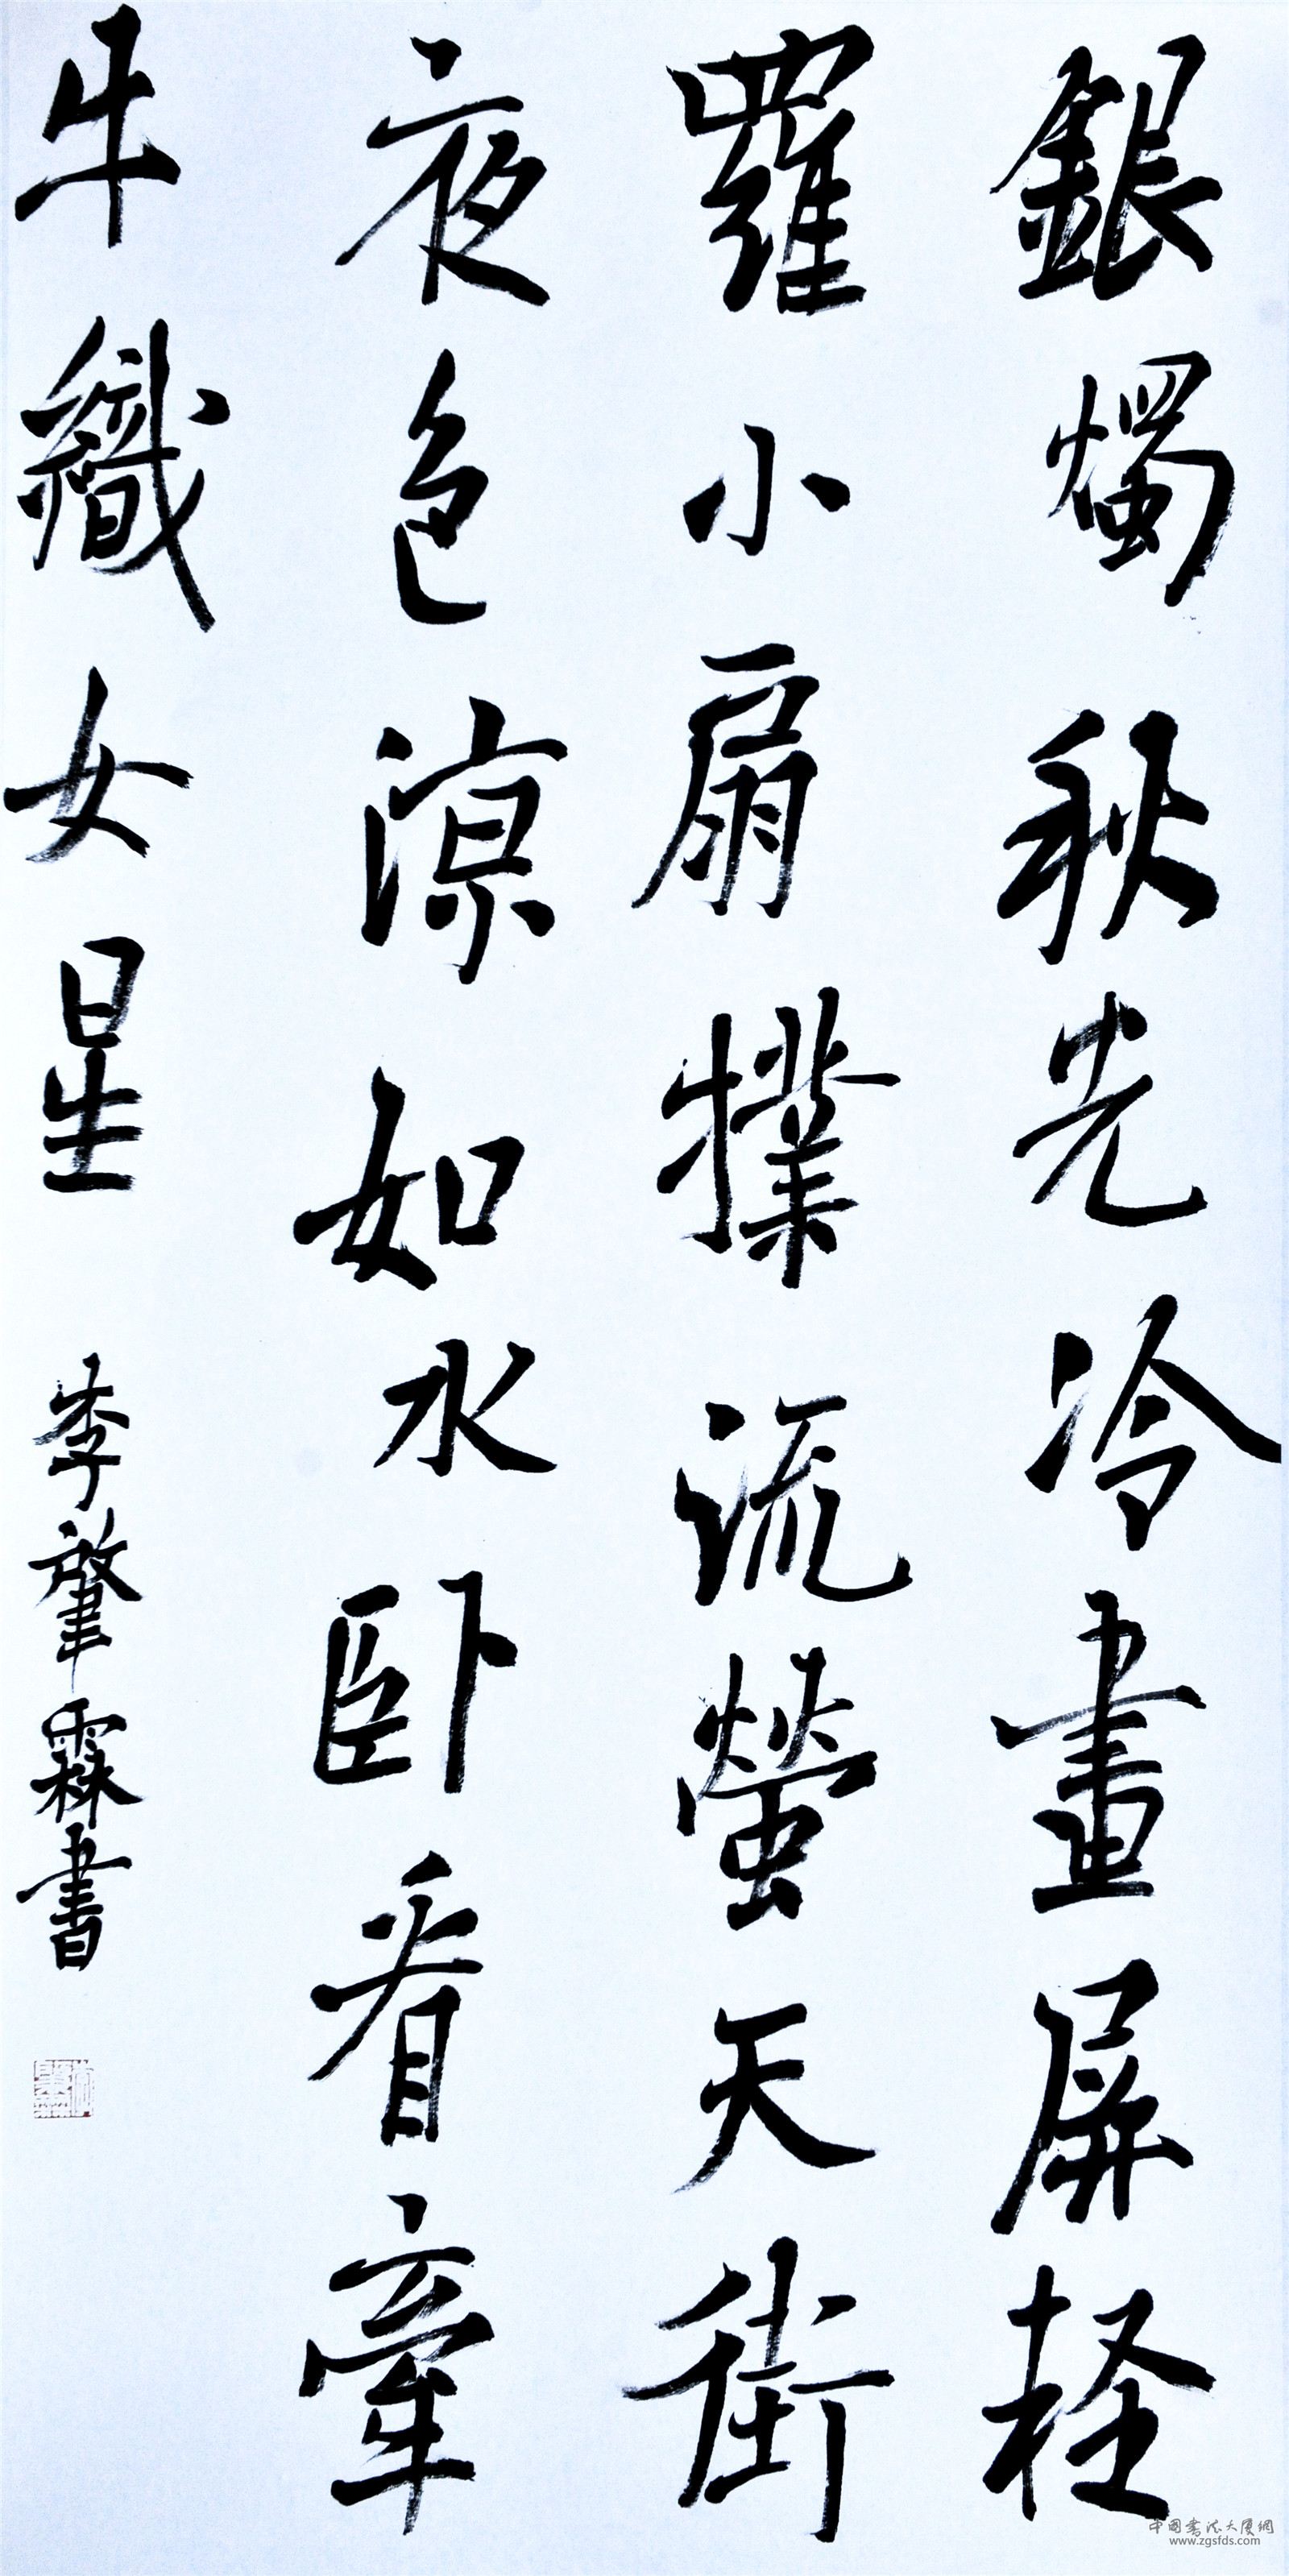 銀燭秋光冷畫屏軽
羅小扇撲流螢天街
夜色涼如水卧看牽
牛織女星
李肇霖書
中国书法大厦網
www.zgsfds.com